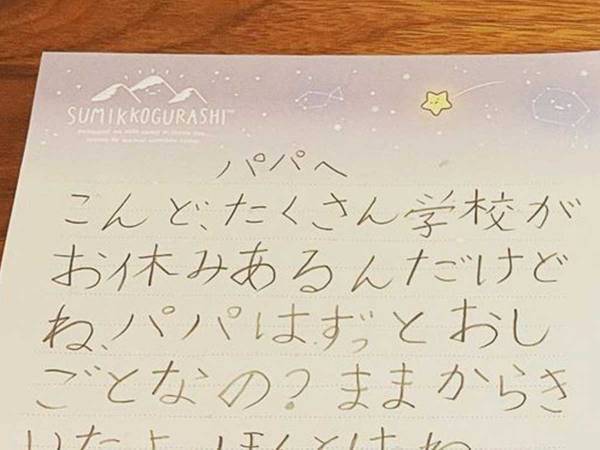 SUMIKKOGURASHI™
パパへ
こんど、たくさん学校が
お休みあるんだけど
ね、パパはずっとおし
ごとなの？ままからき
いたよ。ほんとはね